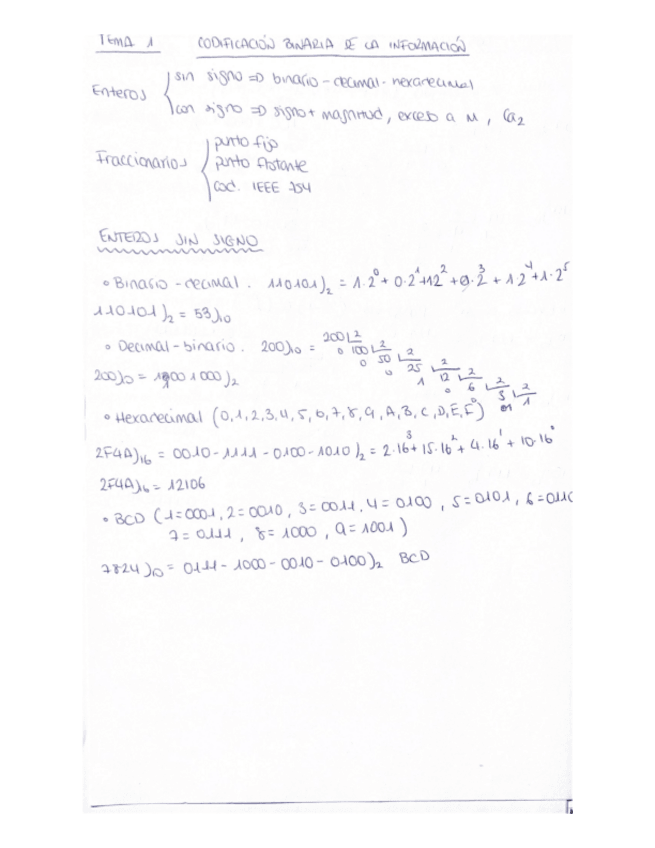 TEMA 1 CODIFICACIÓN BINARIA DE LA INFORMACIÓN
Enteros { sin signo => binario - decimal - hexadecimal
con signo => signo + magnitud, exceso a M, Ca2
Fraccionarios { punto fijo
punto flotante
cod. IEEE 754
ENTEROS SIN SIGNO
∘ Binario - decimal. 110101)₂ = 1·2⁰ + 0·2¹ + 1 2² + 0·2³ + 1 2⁴ + 1·2⁵
110101)₂ = 53)₁₀
∘ Decimal - binario. 200)₁₀ = 200 2
0 100 2
0 50 2
0 25 2
1 12 2
0 6 2
0 3 2
1 1
200)₁₀ = 11001000)₂
∘ Hexadecimal (0,1,2,3,4,5,6,7,8,9,A,B,C,D,E,F)
2F4A)₁₆ = 0010 - 1111 - 0100 - 1010)₂ = 2·16³ + 15·16² + 4·16¹ + 10·16⁰
2F4A)₁₆ = 12106
∘ BCD (1=0001, 2=0010, 3=0011, 4=0100, 5=0101, 6=0110
7=0111, 8=1000, 9=1001)
7824)₁₀ = 0111 - 1000 - 0010 - 0100)₂ BCD